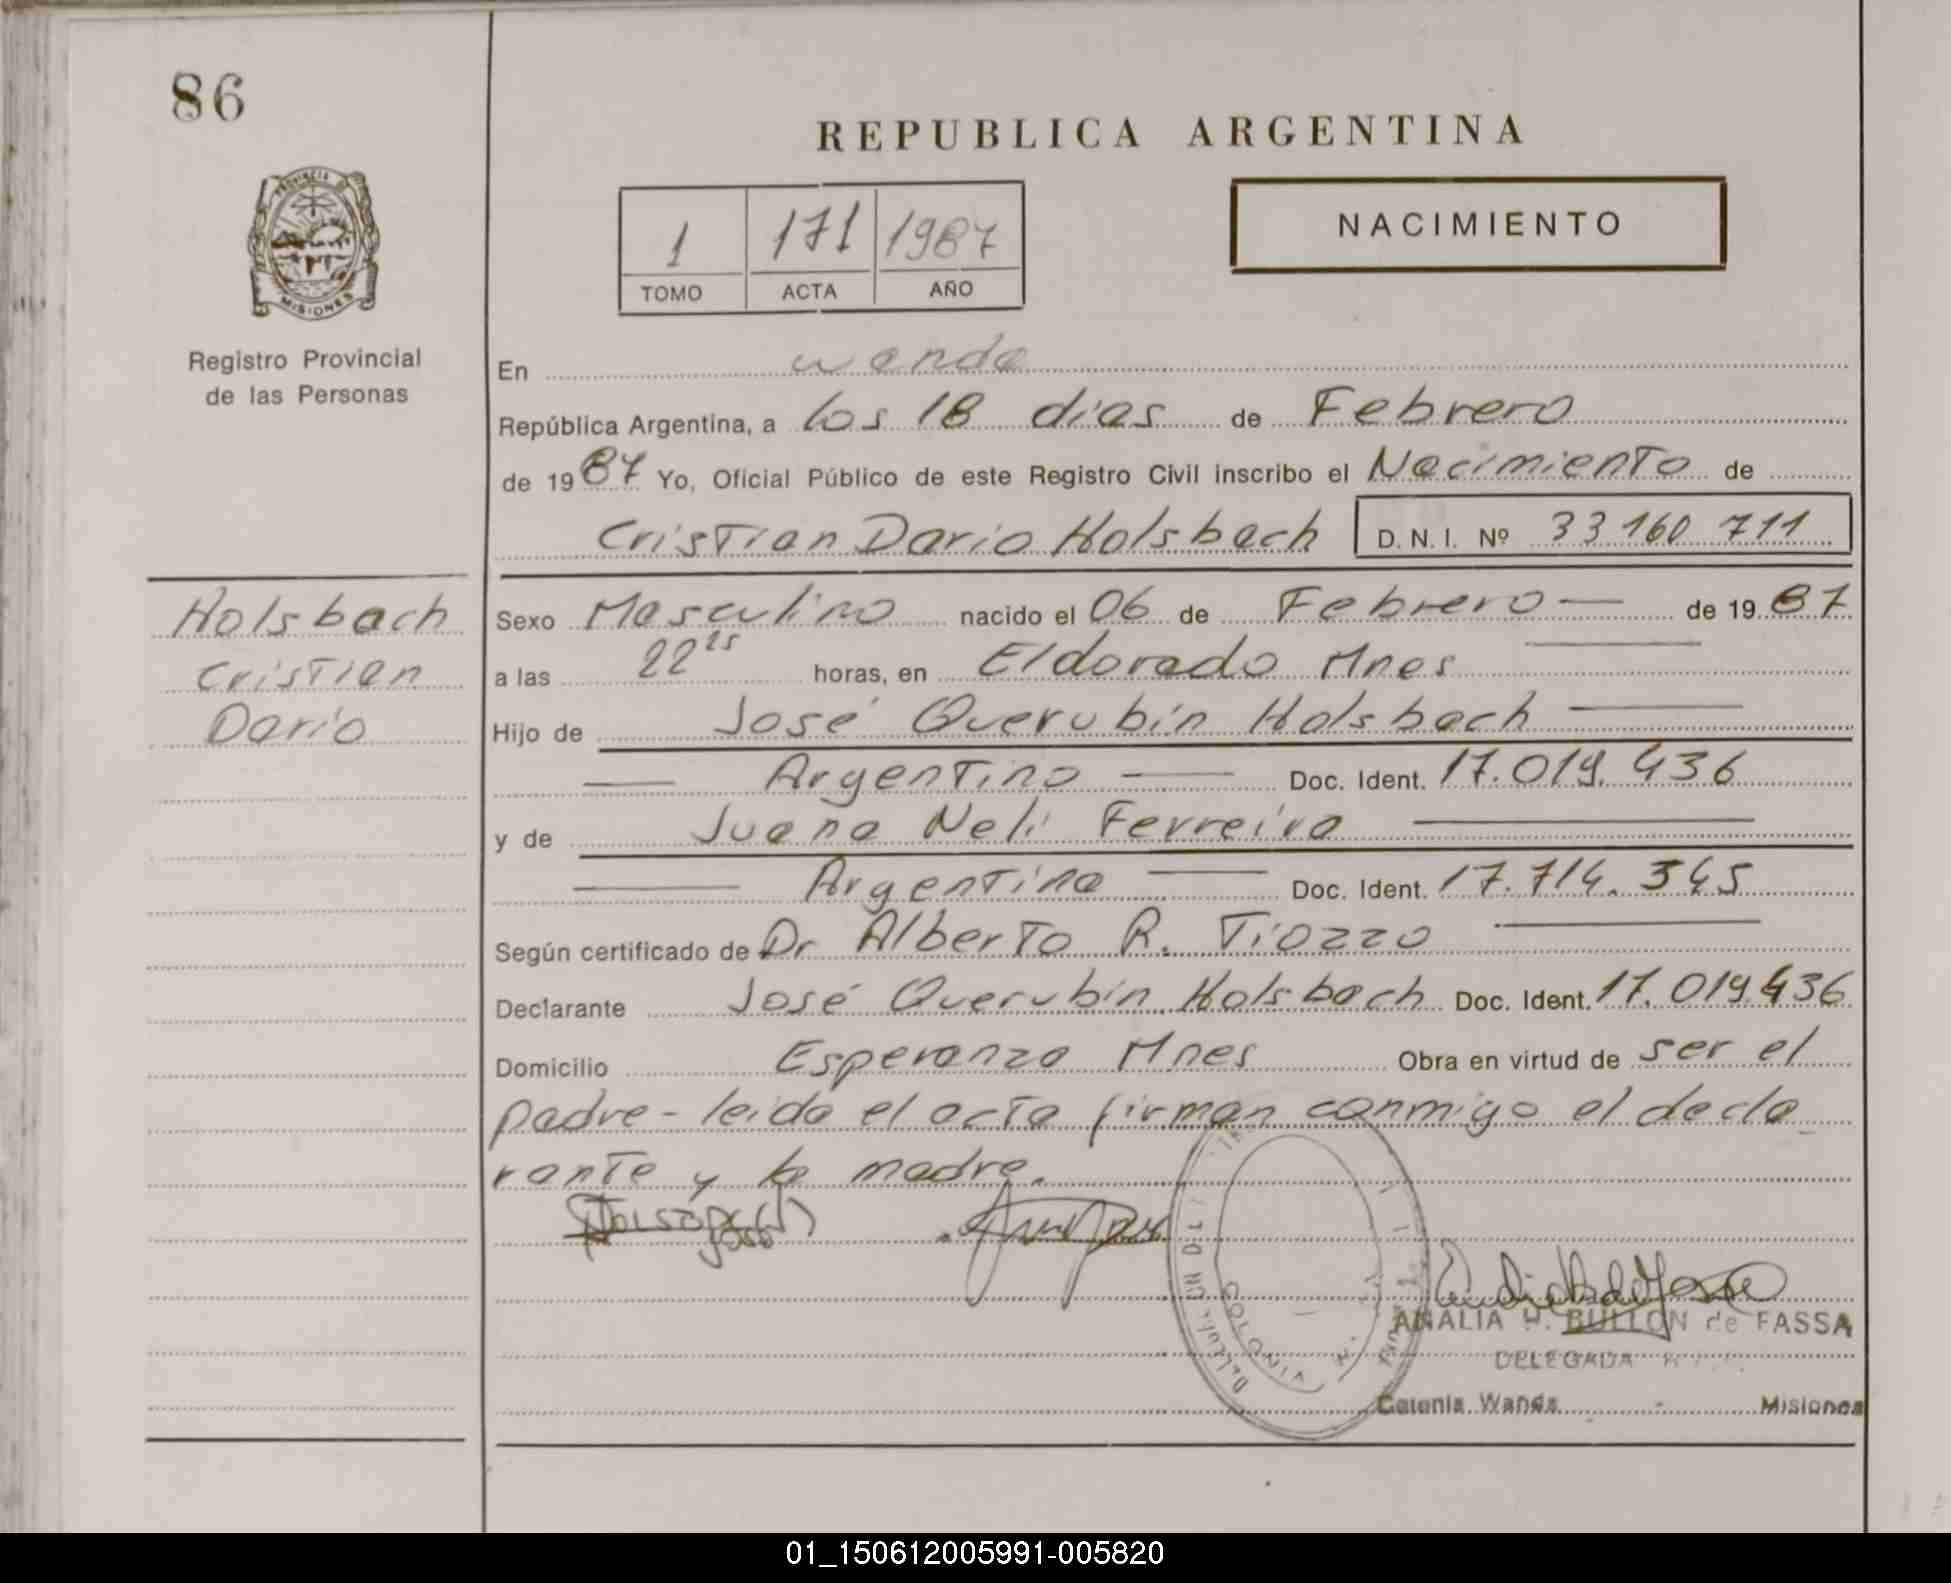 86
REPUBLICA ARGENTINA
PROVINCIA DE
MISIONES
Registro Provincial
de las Personas
1 171 1987
TOMO ACTA AÑO
NACIMIENTO
En wanda
República Argentina, a los 18 dias de Febrero
de 1987 Yo, Oficial Público de este Registro Civil inscribo el Nacimiento de
Cristian Dario Holsbach D.N.I. Nº 33 160 711
Holsbach
Cristian
Dario
Sexo Masculino nacido el 06 de Febrero — de 1987
a las 22 15 horas, en Eldorado Mnes
Hijo de José Querubín Holsbach
Argentino Doc. Ident. 17.019.436
y de Juana Neli Ferreira
Argentina Doc. Ident. 17.714.345
Según certificado de Dr Alberto R. Tiozzo
Declarante José Querubín Holsbach Doc. Ident. 17.019.436
Domicilio Esperanza Mnes Obra en virtud de ser el
padre - leida el acta firman conmigo el decla
rante y la madre.
ANALIA H. BULLON de FASSA
DELEGADA
Colonia Wanda Misiones
01_150612005991-005820